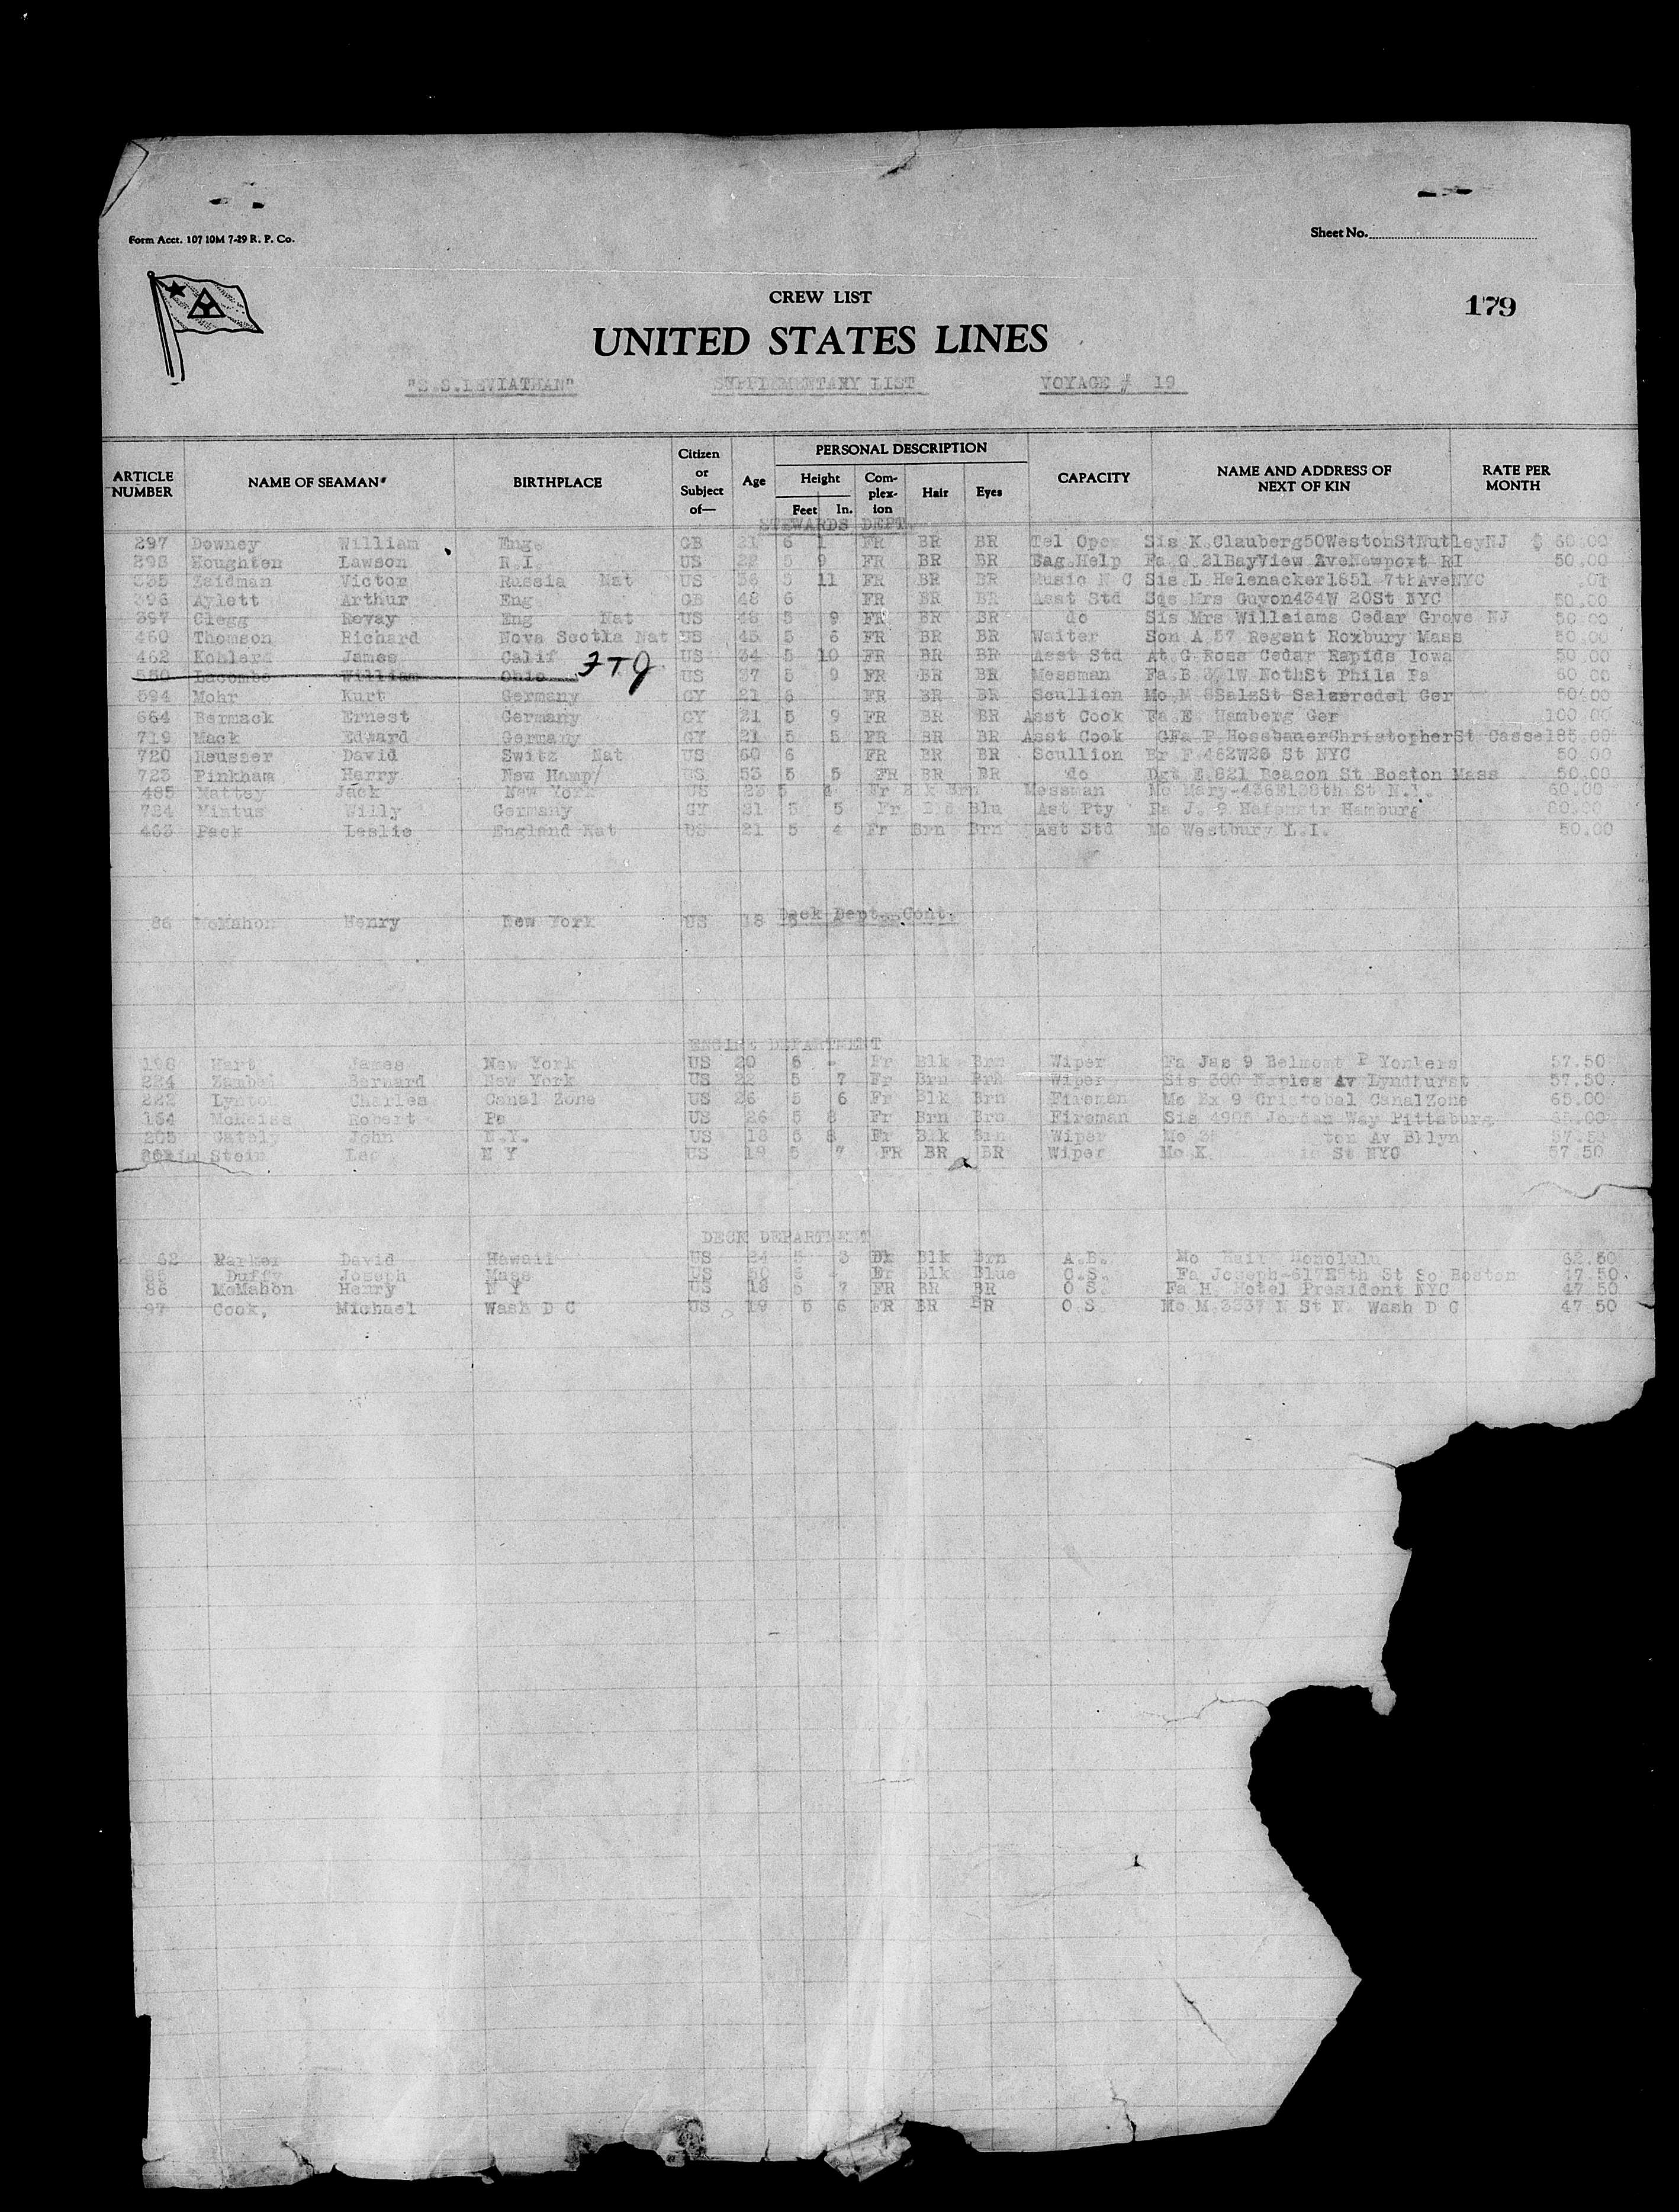 Form Acct. 107 10M 7-29 R. P. Co.
Sheet No.
CREW LIST
179
UNITED STATES LINES
"S.S.LEVIATHAN" SUPPLEMENTARY LIST VOYAGE # 19
ARTICLE NUMBER NAME OF SEAMAN BIRTHPLACE Citizen or Subject of— Age PERSONAL DESCRIPTION Height Feet In. Com-plex-ion Hair Eyes CAPACITY NAME AND ADDRESS OF NEXT OF KIN RATE PER MONTH
STEWARDS DEPT.
297 Downey William Eng. GB 21 6 1 FR BR BR Tel Oper Sis K.Clauberg50WestonStNutleyNJ $ 60.00
298 Houghten Lawson R.I. US 22 5 9 FR BR BR Bag.Help Fa G.21BayView AveNewport RI 50.00
335 Zeidman Victor Russia Nat US 36 5 11 FR BR BR Music N C Sis L Helenacker1651 7thAveNYC .01
396 Aylett Arthur Eng GB 48 6 FR BR BR Asst Std Mrs Guyon434W 20St NYC 50.00
397 Clegg Revay Eng Nat US 5 9 FR BR BR do Sis Mrs Willaiams Cedar Grove NJ 50.00
460 Thomson Richard Nova Scotia Nat US 45 5 6 FR BR BR Waiter Son A 57 Regent Roxbury Mass 50.00
462 Kohlerd James Calif US 34 5 10 FR BR BR Asst Std At G Ross Cedar Rapids Iowa 50.00
550 Lacombe William Ohio FTJ US 37 5 9 FR BR BR Messman Fa B NothSt Phila Pa 60 00
594 Mohr Kurt Germany GY 21 6 FR BR BR Scullion Mo M 8SalzSt Ger 50.00
664 Bermack Ernest Germany GY 21 5 9 FR BR BR Asst Cook Fa E Hamberg Ger 100.00
719 Mack Edward Germany GY 21 5 5 FR BR BR Asst Cook GFa P HossbauerChristopherSt Cassel85.00
720 Reusser David Switz Nat US 60 6 FR BR BR Scullion Br F 462W26 St NYC 50 00
723 Pinkham Harry New Hamp/ US 53 5 5 FR BR BR do Dgt E 821 Beacon St Boston Mass 50.00
485 Mattey Jack New York US 23 5 4 Fr Blk Brn Messman Mo Mary-436E138th St N.Y. 60.00
724 Mintus Willy Germany GY 21 5 5 Fr Blu Ast Pty Fa J. 9 Hamburg 80.00
463 Pack Leslie England Nat US 21 5 4 Fr Brn Brn Ast Std Mo Westbury L.I. 50.00
Deck Dept. Cont.
86 McMahon Henry New York US 18 5
ENGINE DEPARTMENT
198 Hart James New York US 20 6 - Fr Blk Brn Wiper Fa Jas 9 Belmont P Yonkers 57.50
224 Bernard New York US 22 5 7 Fr Brn Brn Wiper Sis 300 Naples Av Lyndhurst 57.50
222 Lynton Charles Canal Zone US 26 5 6 Fr Blk Brn Fireman Mo Bx 9 Cristobal CanalZone 65.00
164 Robert Pa US 26 5 8 Fr Brn Brn Fireman Sis 4905 Jordan Way Pittsburg 65.00
205 Gately John N.Y. US 18 5 8 Fr Blk Brn Wiper Mo ton Av Bklyn 57.50
Stein Leo N Y US 19 5 7 FR BR BR Wiper Mo K St NYC 57 50
DECK DEPARTMENT
62 Parker David Hawaii US 24 5 3 Dk Blk Brn A.B. Mo Honolulu 62.50
86 Duffy Joseph Mass US 50 6 - Fr Blk Blue O.S. Fa Joseph-617E5th St So Boston 47 50.
86 McMahon Henry N Y US 18 5 7 FR BR BR O S. Fa H. Hotel President NYC 47 50
97 Cook, Michael Wash D C US 19 5 6 FR BR BR O.S. Mo M.3337 N St N. Wash D C 47 50